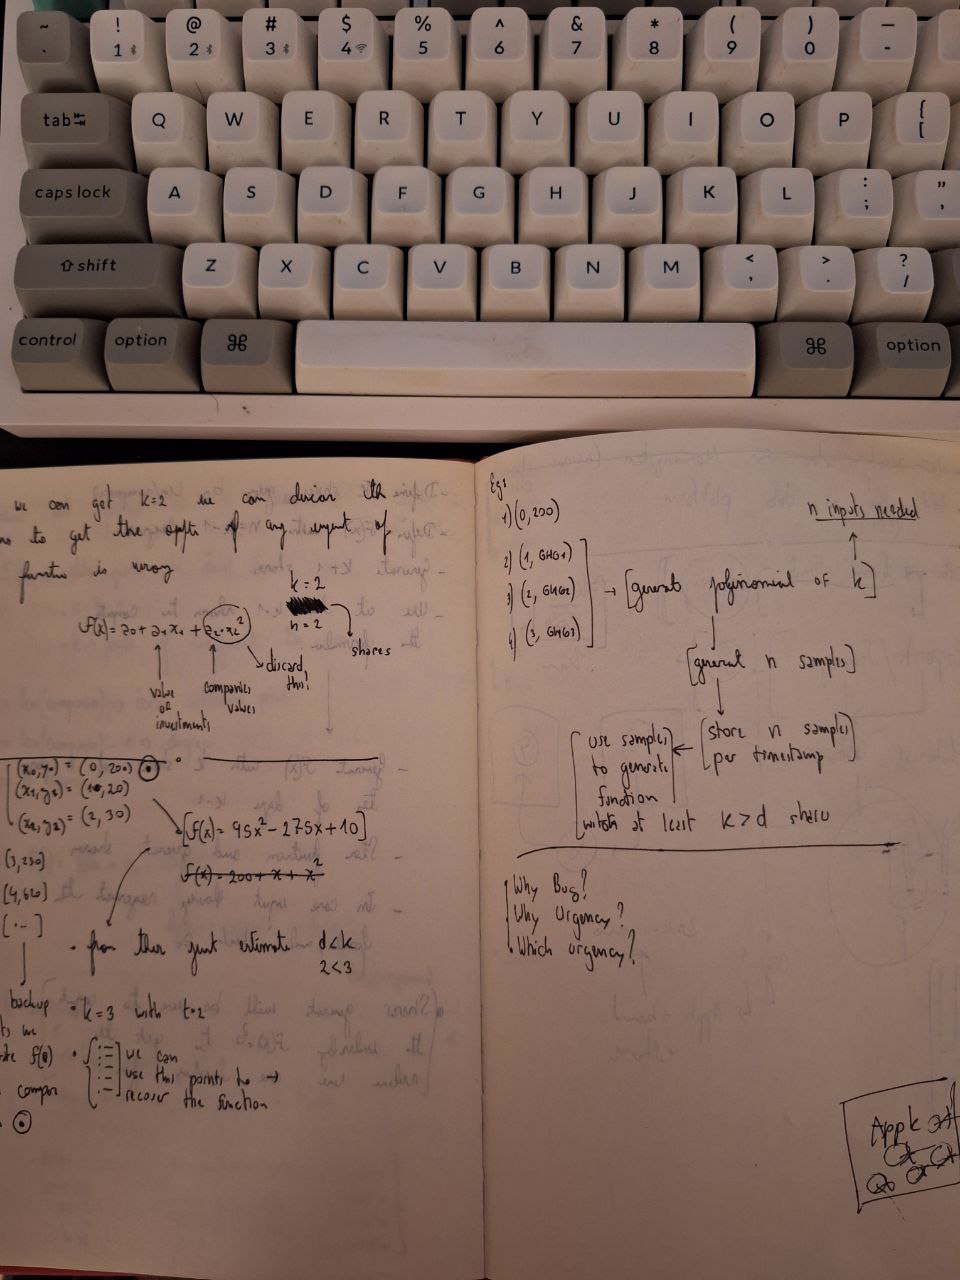 ~ `
! 1
@ 2
# 3
$ 4
% 5
^ 6
& 7
* 8
( 9
) 0
— -
tab Q W E R T Y U I O P { [
caps lock A S D F G H J K L : ; " '
shift Z X C V B N M < , > . ? /
control option ⌘ ⌘ option
we can get k=2 we can
to get the of any of
functio is wrong
k = 2
n = 2
shares
f(x) = a0 + a1x1 + a2·x2²
discard this!
value
of
investments
companies
values
(x0,y0) = (0, 200)
(x1,y1) = (1, 20)
(x2,y2) = (2, 30)
[f(x) = 95x² - 275x + 10]
f(x) = 200 + x + x²
(3,230)
[4,620]
[...]
• from ther just estimate d<k
2<3
backup
• k=3 with t=2
we
f(0)
compar
• we can
use this points to →
recover the function
Egs
1) (0,200)
2) (1, GHG1)
3) (2, GHG2)
4) (3, GHG3)
n inputs needed
→ [generat polinomial of k]
[generat n samples]
[store n samples
per timestamp]
use samples
to generate
function
with at least k>d share
Why Bug?
Why Urgency?
Which urgency?